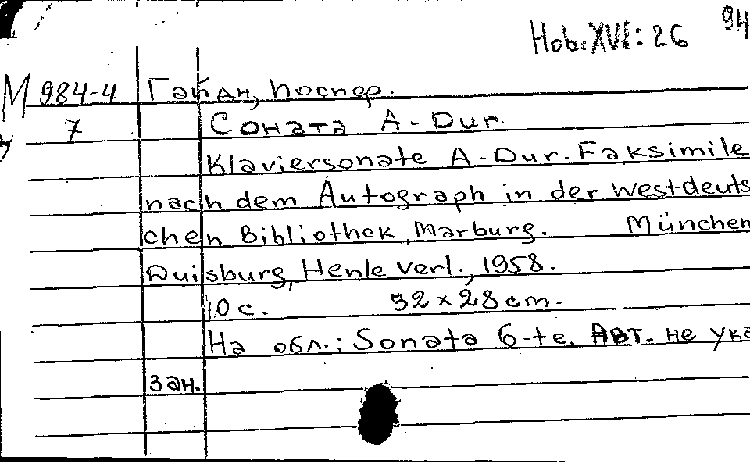 Hob.XVI:26 94
М 984-4 Гайдн, Йоспер.
7 Соната A-Dur.
Klaviersonate A-Dur. Faksimile
nach dem Autograph in der westdeuts
chen Bibliothek, Marburg. München
Duisburg, Henle verl., 1958.
10 с. 32 × 28 cm.
На обл.: Sonata 6-te. Авт. не ука
зан.